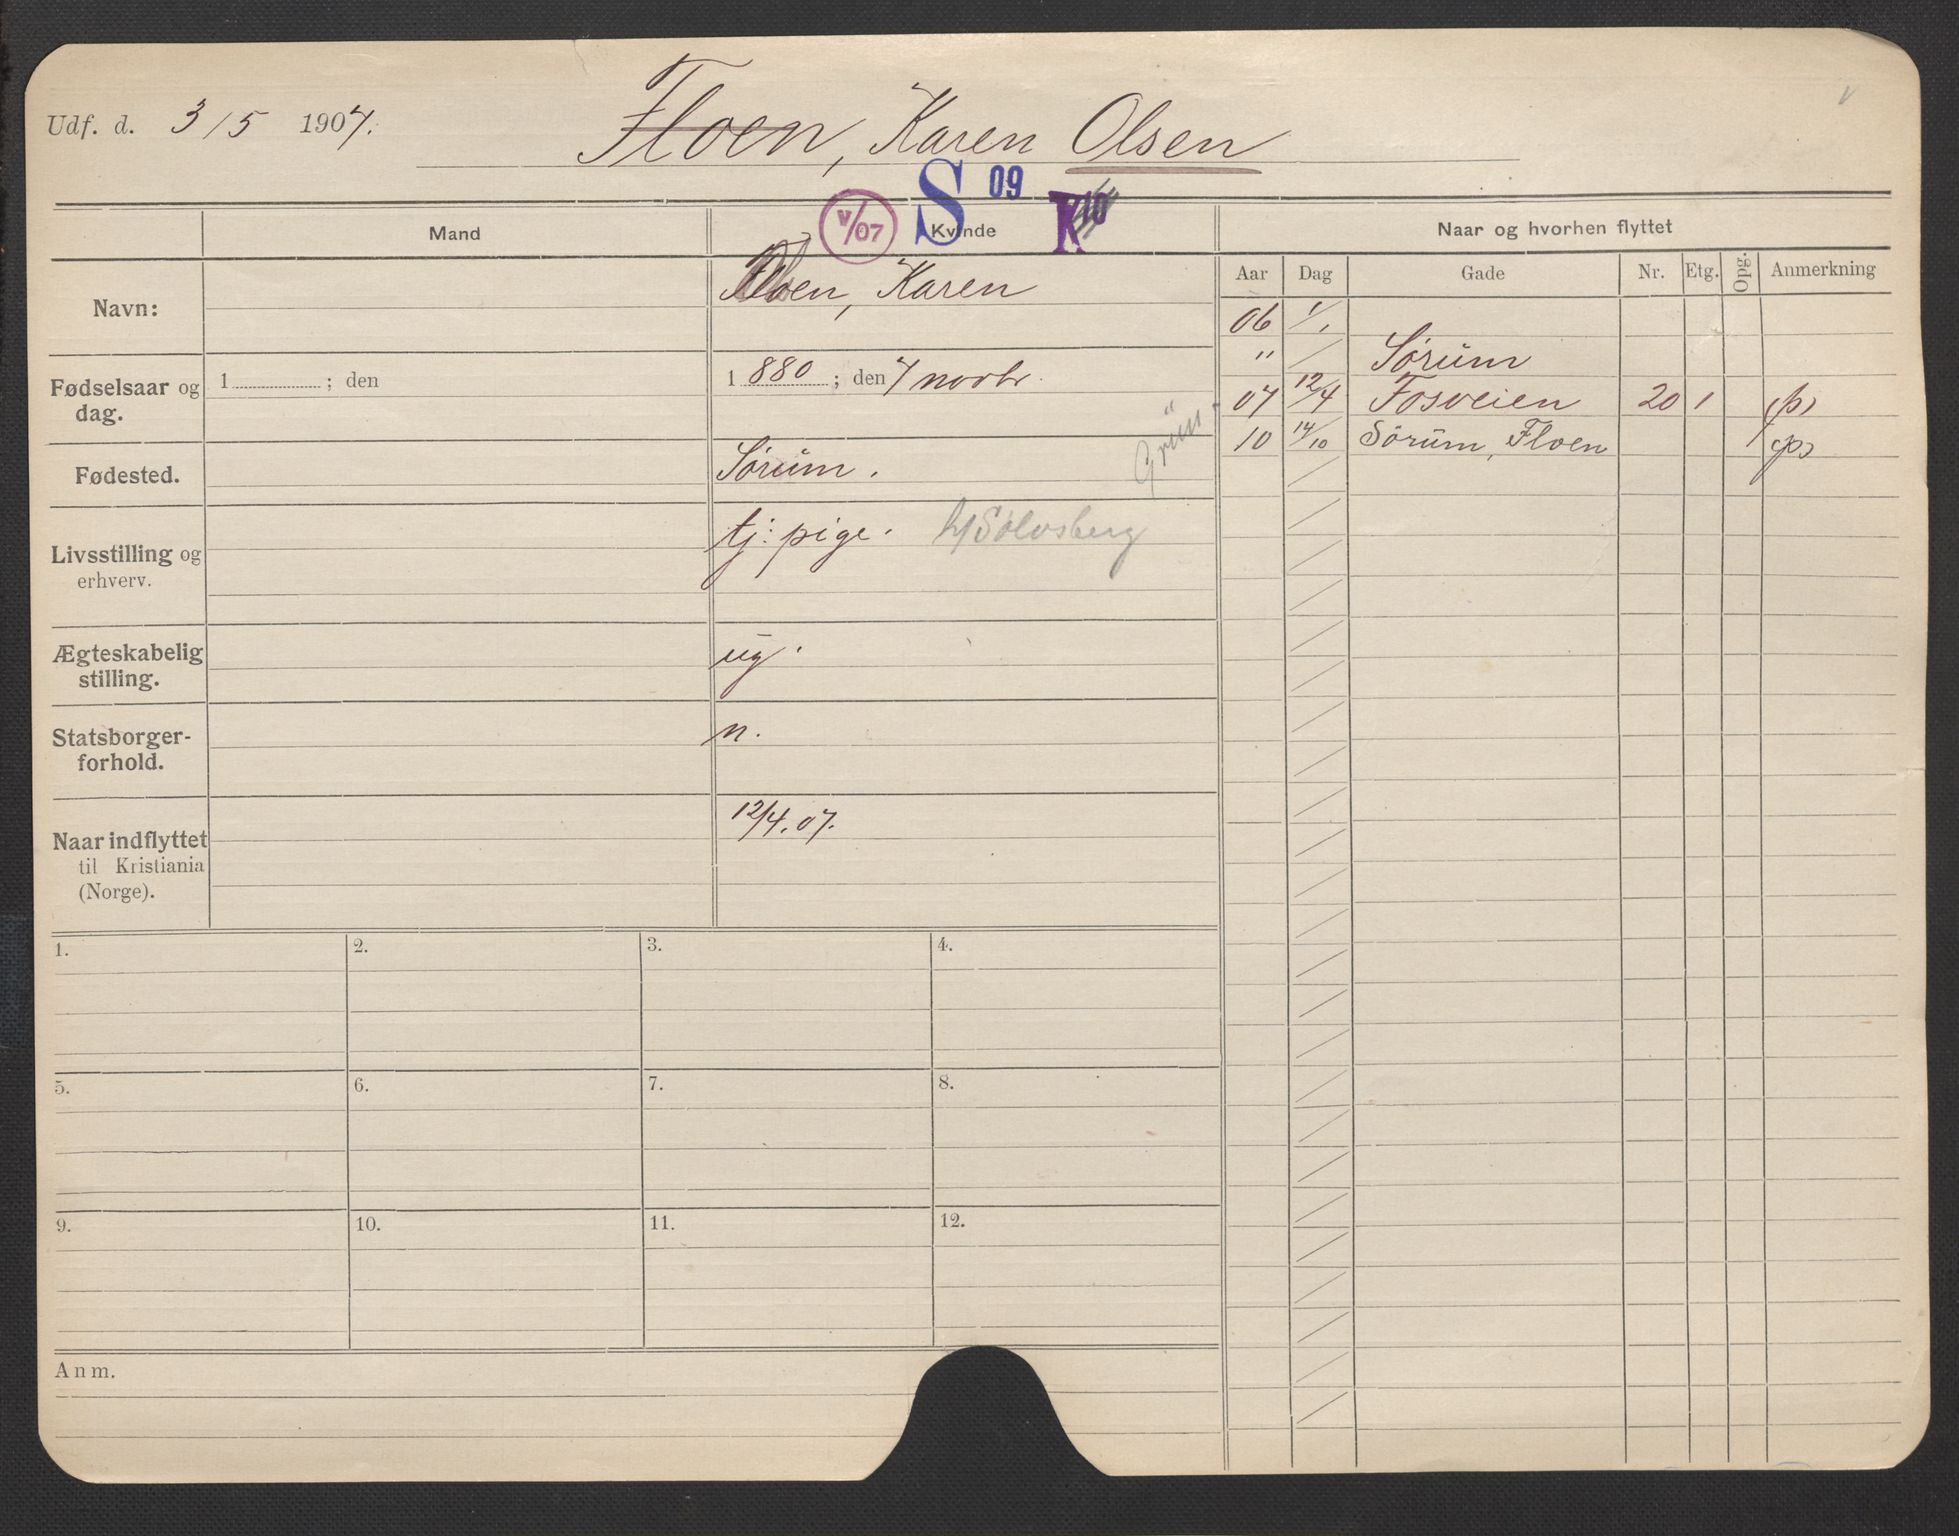 Udf. d. 3/5 1907.
Floen, Karen Olsen
V/07 S 09 K 10
Mand Kvinde Naar og hvorhen flyttet
Aar Dag Gade Nr. Etg. Opg. Anmerkning
Navn: Floen, Karen
06 1/1
" Sørum
Fødselsaar og dag. 1 ; den 1880 ; den 7 novbr.
07 12/4 Fosveien 20 1 (p)
10 14/10 Sørum, Floen (p)
Fødested. Sørum. Grün-
Livsstilling og erhverv. tj: pige. h/Sølvsberg
Ægteskabelig stilling. ug.
Statsborger-forhold. n.
Naar indflyttet til Kristiania (Norge). 12/4. 07.
1. 2. 3. 4.
5. 6. 7. 8.
9. 10. 11. 12.
Anm.